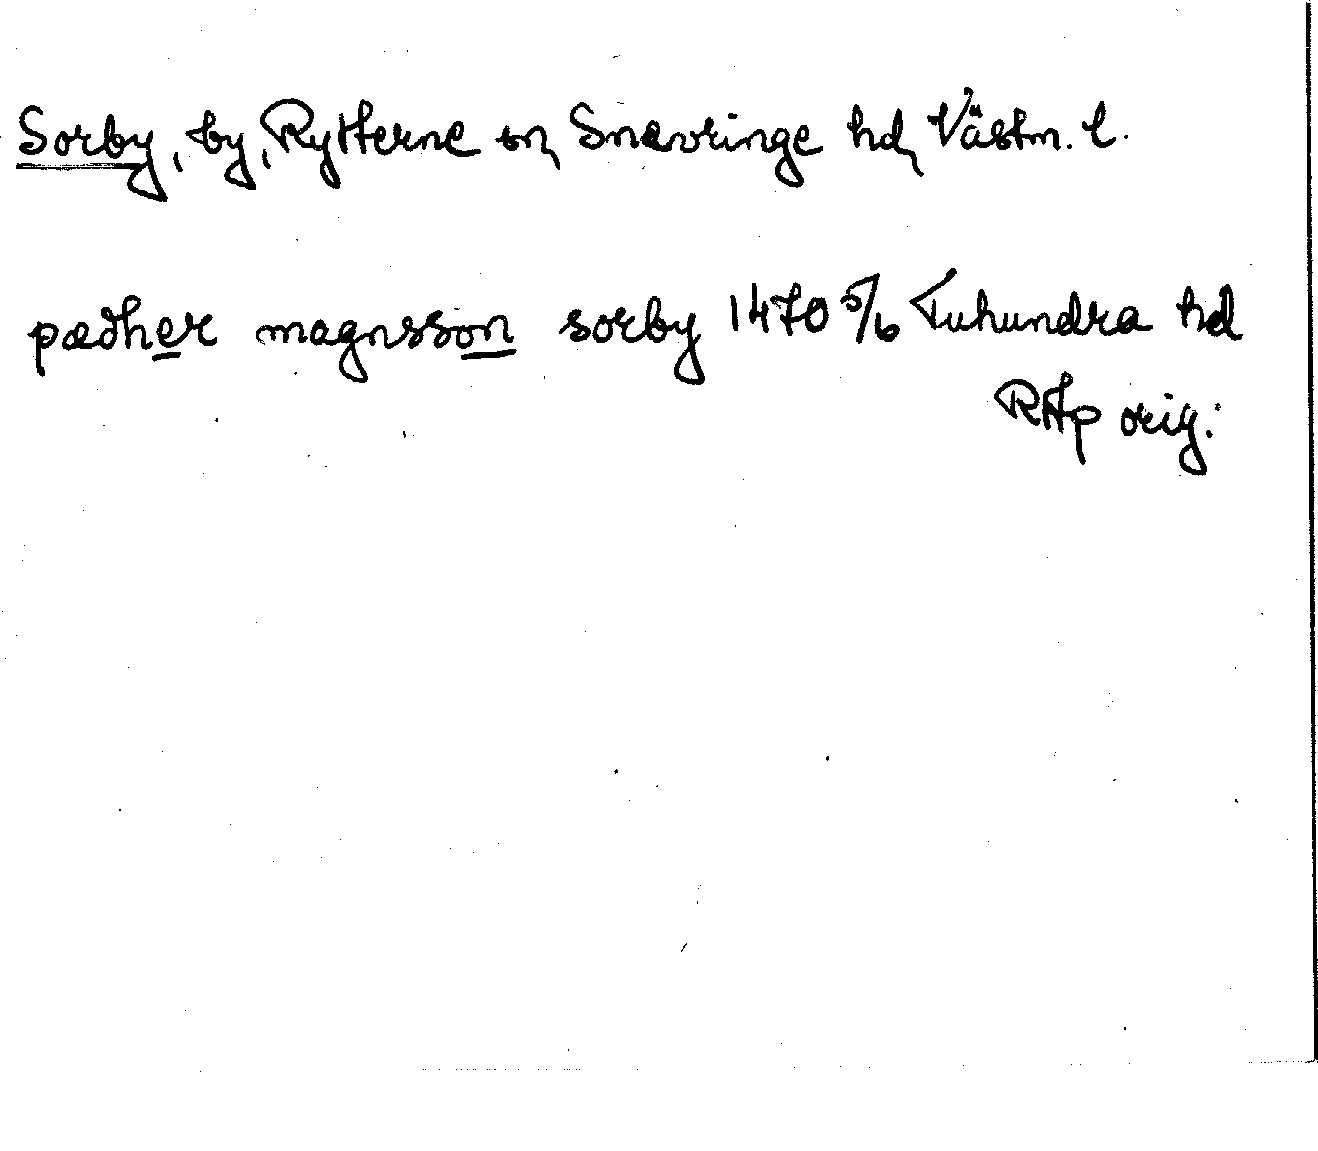 Sorby, by, Rytterne sn, Snevringe hd, Västm. l.
pædher magnsson sorby 1470 5/6 Tuhundra hd
RAp orig.